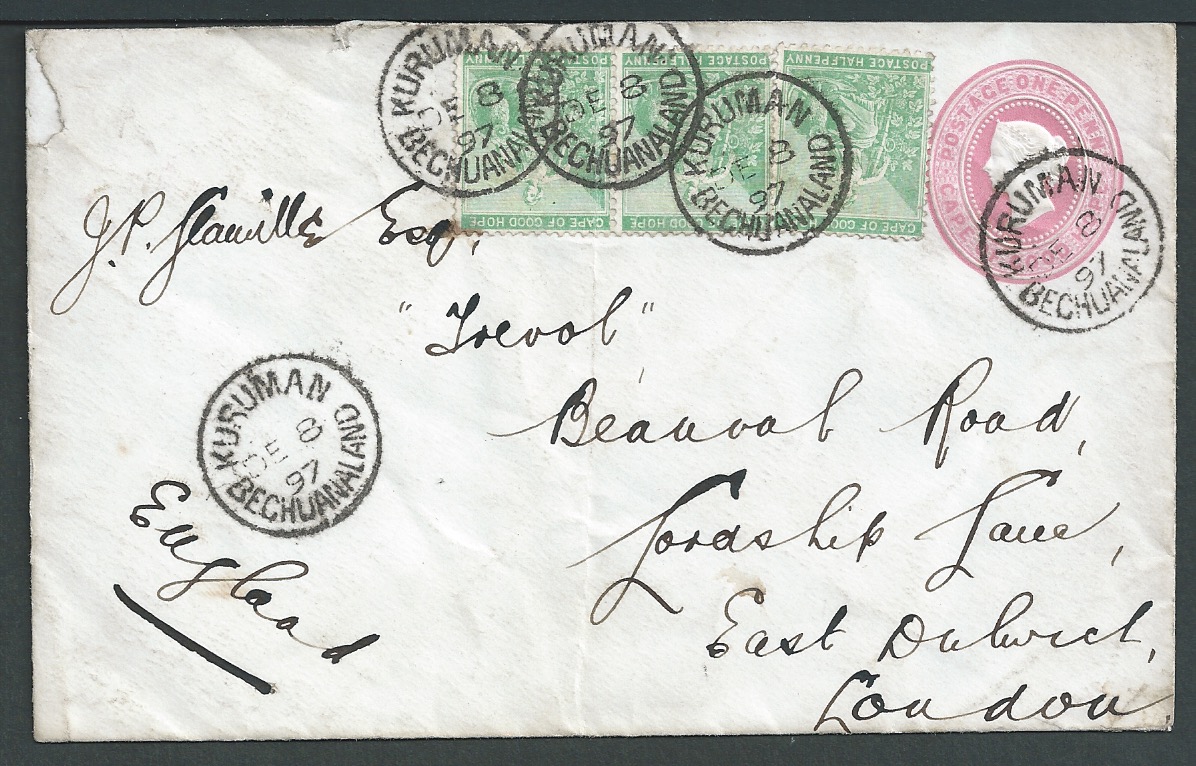 POSTAGE HALFPENNY
POSTAGE HALFPENNY
POSTAGE HALFPENNY
CAPE OF GOOD HOPE
CAPE OF GOOD HOPE
CAPE OF GOOD
POSTAGE ONE PENNY
KURUMAN
DE 8
97
BECHUANALAND
KURUMAN
DE 8
97
BECHUANALAND
KURUMAN
DE 8
97
BECHUANALAND
KURUMAN
DE 8
97
BECHUANALAND
J.P. Glanville Esq,
"Trevol"
Beauval Road,
Lordship Lane,
East Dulwich,
London
KURUMAN
DE 8
97
BECHUANALAND
England